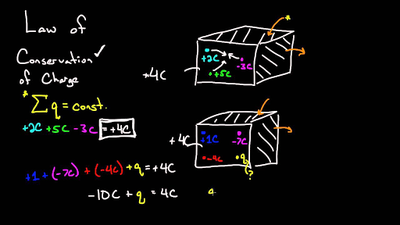 Law of
Conservation ✓
of Charge
* Σ q = const.
+2C +5C -3C = +4C
+1 + (-7C) + (-4C) + q = +4C
-10C + q = 4C
+4C
+2C
-3C
+5C
*
+4C
+1C
-7C
-4C
q
?